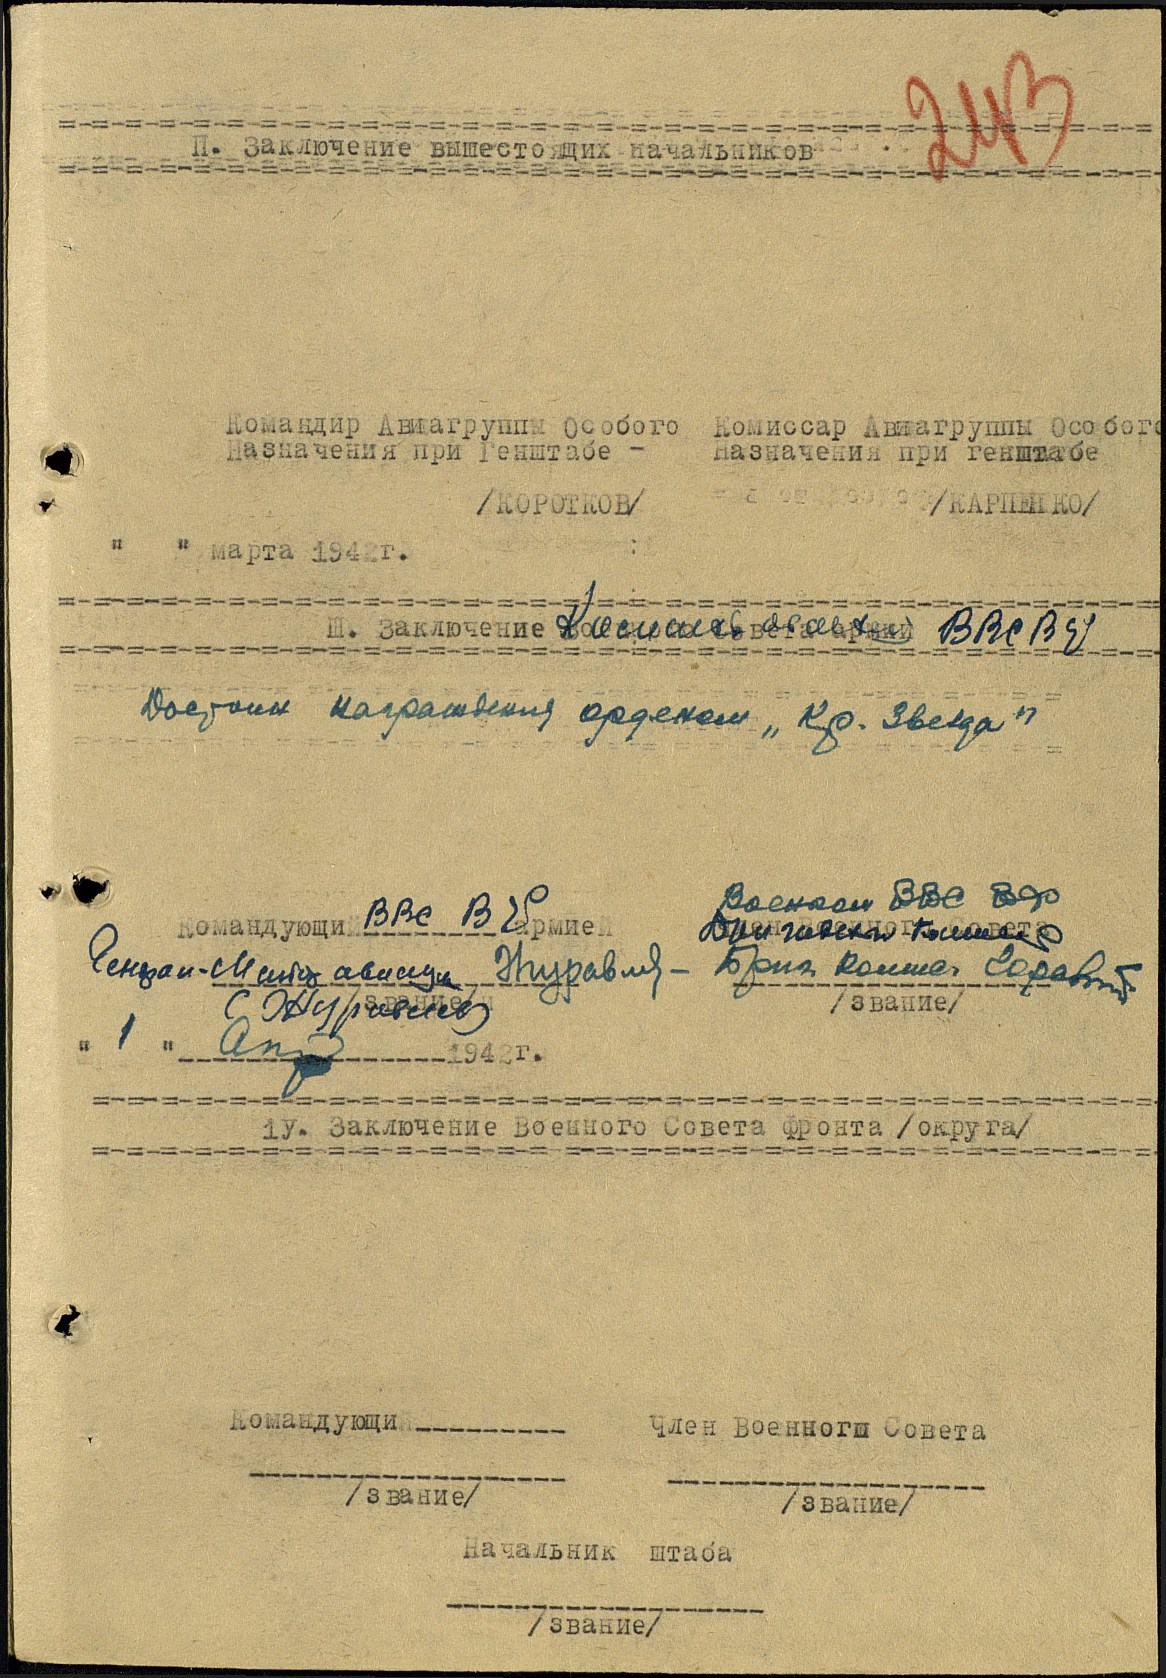 243
П. Заключение вышестоящих начальников
Командир Авиагруппы Особого Комиссар Авиагруппы Особого
Назначения при Генштабе - Назначения при генштабе
/КОРОТКОВ/ /КАРПЕНКО/
" " марта 1942г.
Ш. Заключение Военного Совета армии ВВС
Достоин награждения орденом „Кр. Звезда"
Военком ВВС ВФ
Командующий ВВС армией
Генерал-Майор авиации Журавлев - Бриг. Комиссар
/звание/ /звание/
(Журавлев)
" 1 " Апр 1942г.
1У. Заключение Военного Совета фронта /округа/
Командующи Член Военного Совета
/звание/ /звание/
Начальник штаба
/звание/